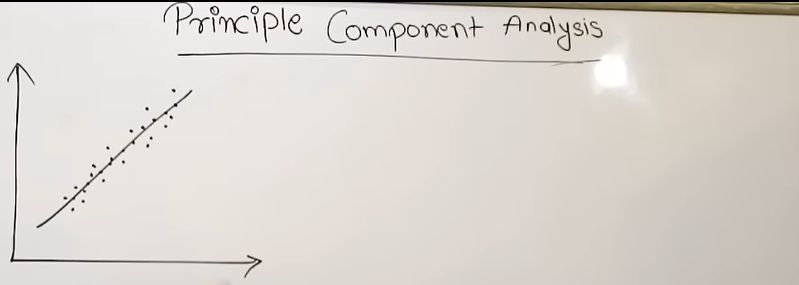 Principle Component Analysis